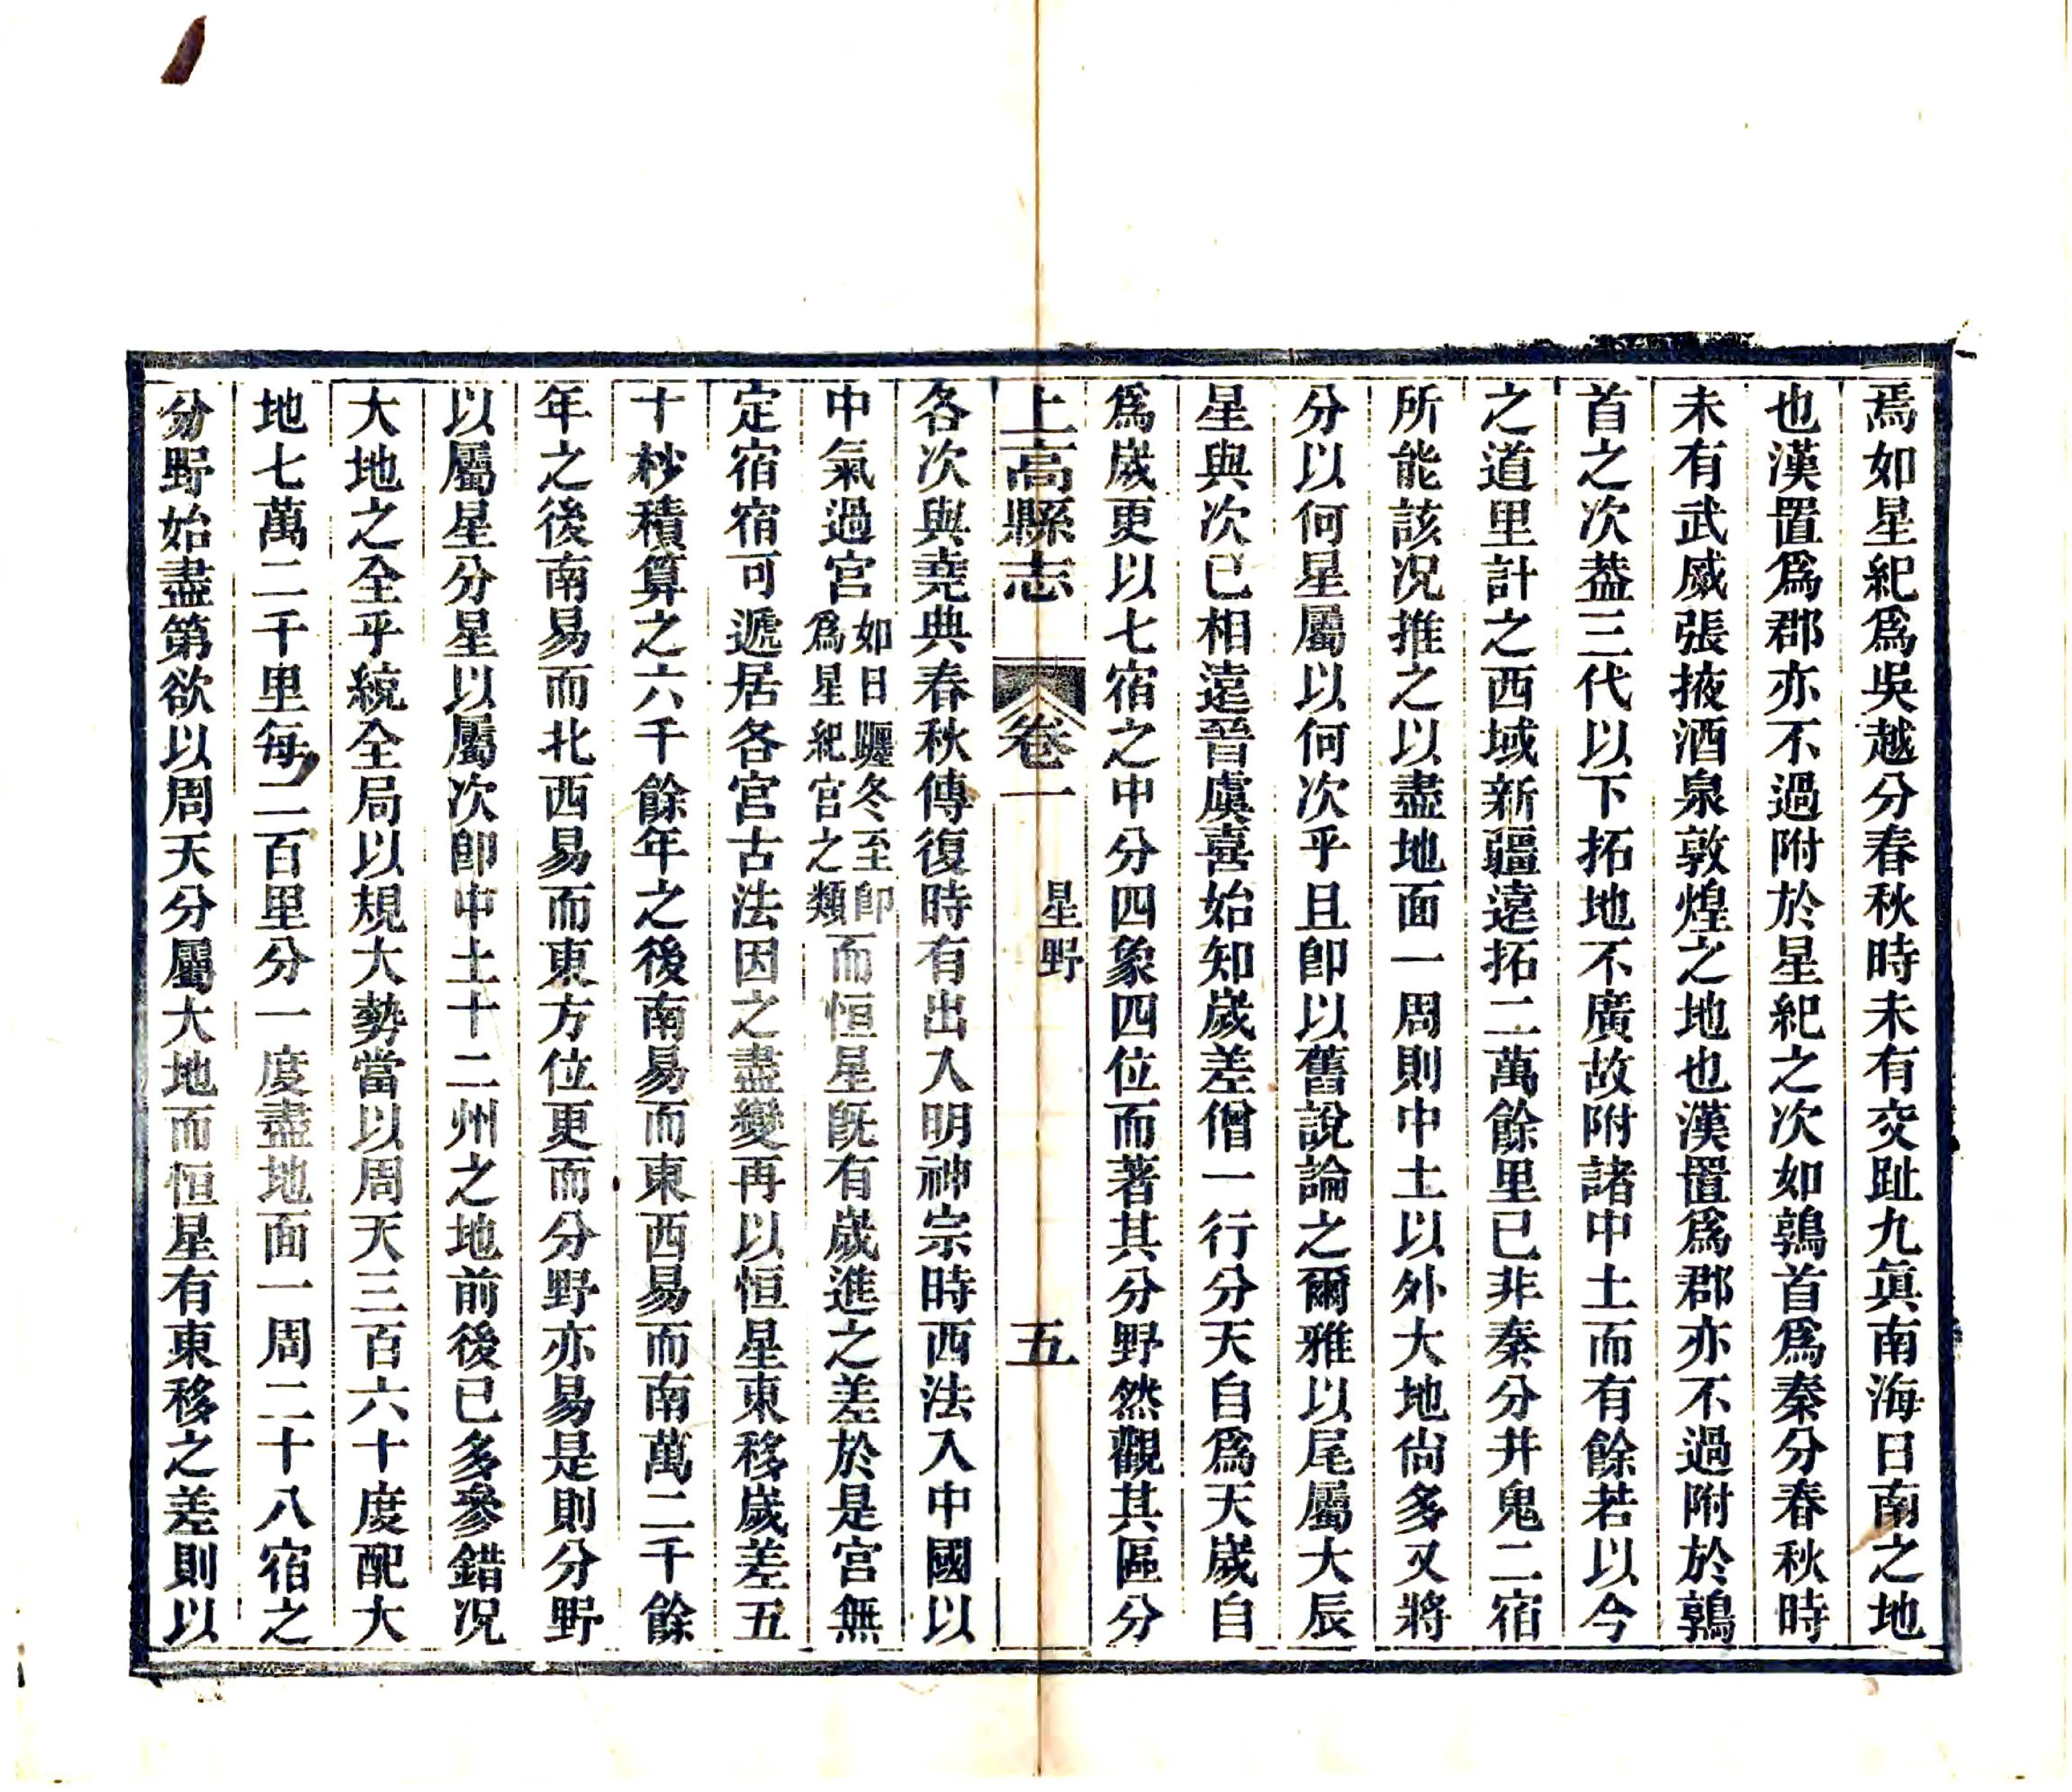 焉如星紀爲吳越分春秋時未有交趾九眞南海日南之地
也漢置爲郡亦不過附於星紀之次如鶉首爲秦分春秋時
未有武威張掖酒泉敦煌之地也漢置爲郡亦不過附於鶉
首之次蓋三代以下拓地不廣故附諸中土而有餘若以今
之道里計之西域新疆遠拓二萬餘里已非秦分井鬼二宿
所能該况推之以盡地面一周則中土以外大地尙多又將
分以何星屬以何次乎且卽以舊說論之爾雅以尾屬大辰
星與次已相遠晉虞喜始知歲差僧一行分天自爲天歲自
爲歲更以七宿之中分四象四位而著其分野然觀其區分
上高縣志 卷一 星野 五
各次與堯典春秋傳復時有出入明神宗時西法入中國以
中氣過宮如日躔冬至卽爲星紀宮之類而恒星旣有歲進之差於是宮無
定宿宿可遞居各宮古法因之盡變再以恒星東移歲差五
十秒積算之六千餘年之後南易而東西易而南萬二千餘
年之後南易而北西易而東方位更而分野亦易是則分野
以屬星分星以屬次卽中土十二州之地前後已多參錯况
大地之全乎統全局以規大勢當以周天三百六十度配大
地七萬二千里每二百里分一度盡地面一周二十八宿之
分野始盡第欲以周天分屬大地而恒星有東移之差則以